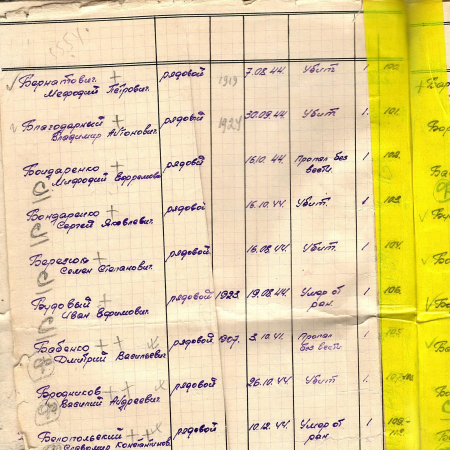 Бернатович рядовой 1919 7.08.44. Убит 1. 100.
Мефодий Петрович.
Благодарный рядовой 1924 30.09.44. Убит 1. 101.
Владимир Антонович.
Бондаренко рядовой 16.10.44. Пропал без 1. 102.
Мефодий Ефремович вести.
Бондаренко рядовой 16.10.44. Убит. 1 103.
Сергей Яковлевич.
Березюк рядовой. 16.08.44. Убит. 1 104.
Семен Степанович.
Будовый рядовой 1923. 19.08.44. Умер от 1
Иван Ефимович. ран
Бабенко рядовой 1907. 3.10.41. Пропал 1
Дмитрий Васильевич без вести.
Бродников рядовой. 26.10.44. Убит 1.
Василий Андреевич
Белопольский рядовой 10.12.44. Умер от 1.
Славомир Константинов. ран